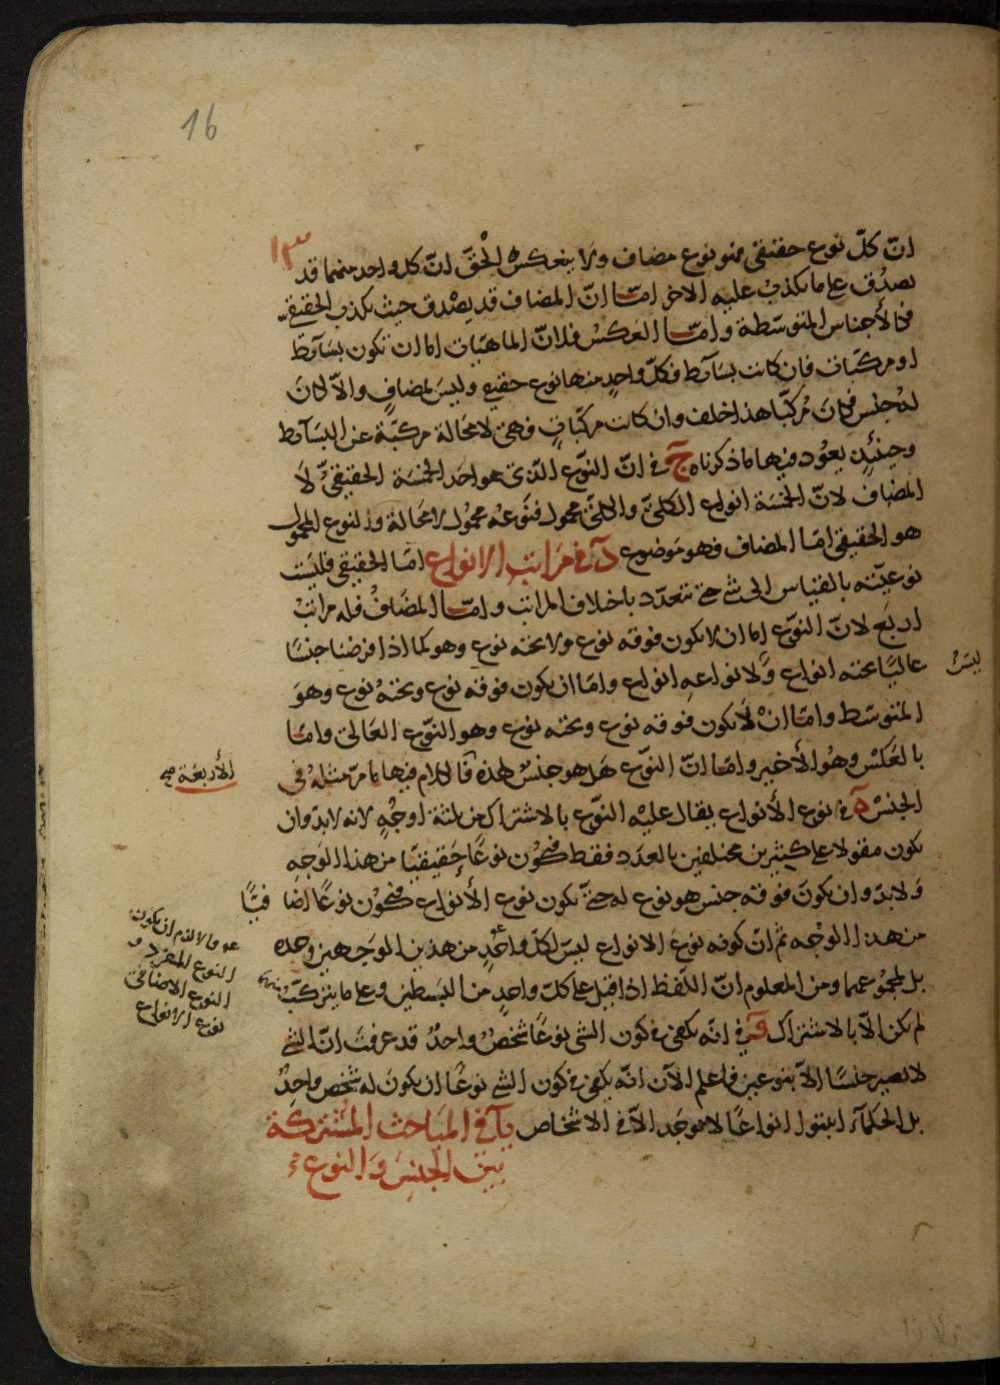 16
١٣
انّ كلّ نوع حقيقى فهو نوع مضاف ولا ينعكس الحقّ انّ كل واحد منهما قد
يصدُق على ما يكذب عليه الاخر امّا انّ المضاف قد يصدق حيث يكذب الحقيقى
فكالأجناس المتوسّطة وامّا العكس فلانّ الماهيّات اما ان تكون بسآئط
او مركبات فان كانت بسآئط فكلّ واحدٍ منها نوع حقيقى وليس بمضافٍ والاّ لكان
له جنس فكان مُركّبًا هذا خلف وان كانت مركّباتٍ فهى لا محالة مركبّة عن البسآئط
وحينئذٍ يعُود فيها ما ذكرناه جَ فى انّ النوّع الذّى هو احد الخمسَة الحقيقىّ لا
المضاف لانّ الخمسَة انواع الكلىّ والكلىّ محمول فنوعهُ محمُول لا محَالة والنوع المحمول
هو الحقيقى امّا المضاف فهو موَضوع دَ فى مَراتبِ الانواع امّا الحقيقى فليسَت
نوعيّته بالقياس الى شئ حتى تتعدّد باختلاف المراتب وامّا المضَافُ فله مراتبُ
اربَع لانّ النوّع اما ان لا يكون فوقه نوع ولا تحته نوع وهو كما اذا فرضنا جنسًا
عاليًا تحته انواع وَلا نواعهِ انواع وامّا ان يكون فوقه نوع وتحتهُ نوع وهوَ
ليسَ
المتوسّط وامّا انْ لا يكون فوقه نوع وتحته نوع وهو النوّع العَالى وامّا
بالعَكسْ وهُو الأخير وامّا انّ النوّع هَل هو جنسٌ لهذه فالكلام فيها ما مرّ مثلهُ فى
الأربعَة صح
الجنسْ هَ فى نوع الأنواع يقال عليْه النوّع بالاشتراك من ثلثة اوجُهٍ لانه لابدّ وان
يكون مقولا على كثيرين مختلفين بالعدَد فقط فيكوُن نوعًا حقيقيّا من هذا الوَجهِ
وَلا بدّ وان يكونَ فوقه جنس هو نوع له حتىّ يكون نوع الأنواع فيكوُن نوعًا اضافيًّا
من هذا الوَجْه ثم انّ كونه نوعَ الانواع ليسَ لكلّ واحْدٍ من هذين الوَجهين وحده
بل لمجموعهما ومن المعلوم انّ اللّفظ اذا قيل على كلّ واحدٍ من البسَطين وعلى ما يتركّبُ منهما
لم يكن الاّ بالاشتراك وَ فى انّه يكفى فى كون الشى نوعًا شخصٌ واحدٌ قد عرفتَ انّ الشئ
لا يصير جنسًا الاّ بنوعين فاعلم الآن انّه يكفى فى كون الشئ نوعًا ان يكونَ له شخص واحدٌ
بل الحكمآء اثبتوا انواعًا لا يوجَد الاّ فى الاشخاص يآ فى المبَاحث المشتركة
بَين الجنسَ وَالنوع
النوع المفرد و
النوع الاضافى
نوع الانواع